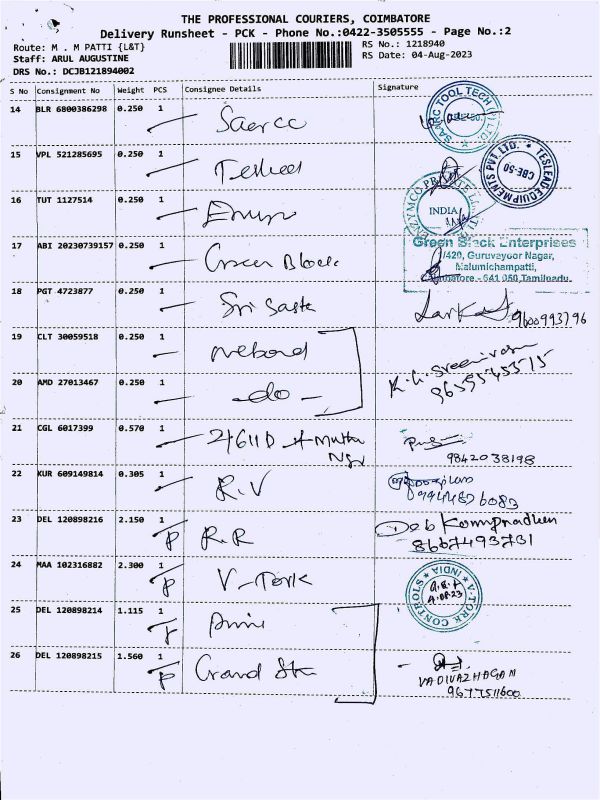 THE PROFESSIONAL COURIERS, COIMBATORE
Delivery Runsheet - PCK - Phone No.:0422-3505555 - Page No.:2
Route: M . M PATTI {L&T}
RS No.: 1218940
Staff: ARUL AUGUSTINE
RS Date: 04-Aug-2023
DRS No.: DCJB121894002
S No Consignment No Weight PCS Consignee Details Signature
14 BLR 6800386298 0.250 1
SAARC TOOL TECH (P) LTD.
15 VPL 521285695 0.250 1
TESLEAD EQUIPMENTS PVT. LTD.
CBE-50
16 TUT 1127514 0.250 1
INDIA
17 ABI 20230739157 0.250 1 Green Block
Green Black Enterprises
/420, Guruvayoor Nagar,
Malumichampatti,
- 641 050, Tamilnadu.
18 PGT 4723877 0.250 1 Sri Sasta
9600993796
19 CLT 30059518 0.250 1
K. G. Sreenivasan
9659545515
20 AMD 27013467 0.250 1 -do-
21 CGL 6017399 0.570 1
9842038198
22 KUR 609149814 0.305 1 R.V
9944826083
23 DEL 120898216 2.150 1 P R.R
8667493731
24 MAA 102316882 2.300 1 P V-Tork
V-TORK CONTROLS INDIA
25 DEL 120898214 1.115 1
26 DEL 120898215 1.560 1 P Grand
VADIVAZHAGAN
9677511600